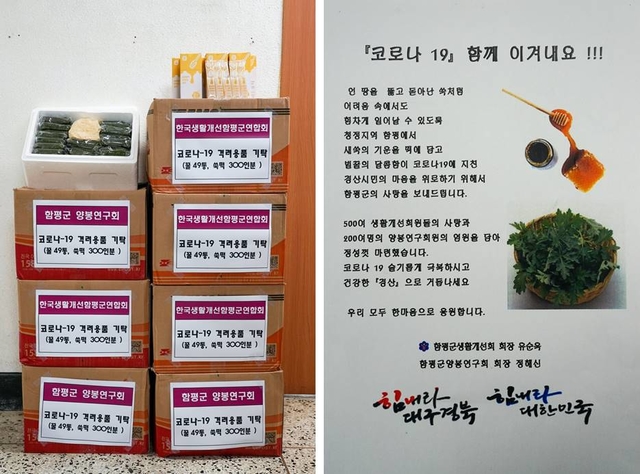 한국생활개선함평군연합회
코로나-19 격려용품 기탁
(꿀 49통, 쑥떡 300인분)
함평군 양봉연구회
코로나-19 격려용품 기탁
(꿀 49통, 쑥떡 300인분)
한국생활개선함평군연합회
코로나-19 격려용품 기탁
(꿀 49통, 쑥떡 300인분)
한국생활개선함평군연합회
코로나-19 격려용품 기탁
(꿀 49통, 쑥떡 300인분)
한국생활개선함평군연합회
코로나-19 격려용품 기탁
(꿀 49통, 쑥떡 300인분)
함평군 양봉연구회
코로나-19 격려용품 기탁
(꿀 49통, 쑥떡 300인분)
함평군 양봉연구회
코로나-19 격려용품 기탁
(꿀 49통, 쑥떡 300인분)
『코로나 19』 함께 이겨내요 !!!
언 땅을 뚫고 돋아난 쑥처럼
어려움 속에서도
힘차게 일어날 수 있도록
청정지역 함평에서
새쑥의 기운을 떡에 담고
벌꿀의 달콤함이 코로나19에 지친
경산시민의 마음을 위로하기 위해서
함평군의 사랑을 보내드립니다.
500여 생활개선회원들의 사랑과
200여명의 양봉연구회원의 염원을 담아
정성껏 마련했습니다.
코로나 19 슬기롭게 극복하시고
건강한 『경산』으로 거듭나세요
우리 모두 한마음으로 응원합니다.
함평군생활개선회 회장 유순옥
함평군양봉연구회 회장 정해신
힘내라 대구경북
힘내라 대한민국